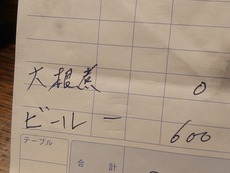 大根煮 0
ビール 一 600
テーブル
合計